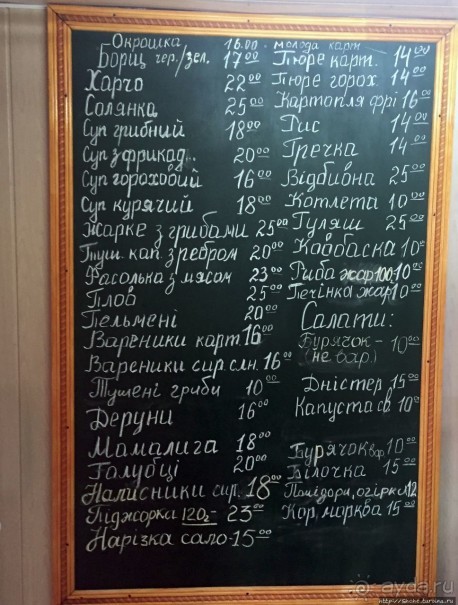 Окрошка 16.00
Борщ чер./зел. 17.00
Харчо 22.00
Солянка 25.00
Суп грибний 18.00
Суп з фрикад.. 20.00
Суп гороховий 16.00
Суп курячий 18.00
Жарке з грибами 25.00
Туш. кап. з ребром 20.00
Фасолька з мясом 23.00
Плов 25.00
Пельмені 20.00
Вареники карт. 16.00
Вареники сир слн. 16.00
Тушені гриби 10.00
Деруни 16.00
Мамалига 18.00
Голубці 20.00
Налисники сир. 18.00
Піджорка 120г- 23.00
Нарізка сало-15.00
молода карт
Пюре карт. 14.00
Пюре горох. 14.00
Картопля фрі 16.00
Рис 14.00
Гречка 14.00
Відбивна 25.00
Котлета 10.00
Гуляш 25.00
Ковбаска 10.00
Риба жар 100-10.00
Печінка жар 10.00
Салати:
Бурячок - 10.00
(не вар.)
Дністер 15.00
Капуста св. 10.00
Бурячок вар 10.00
Білочка 15.00
Помідори, огірки 12
Кор. морква 15.00
ayda.ru